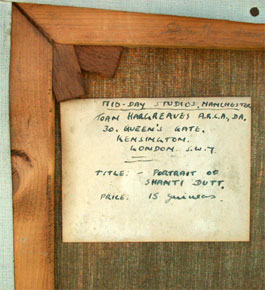 MID-DAY STUDIOS, MANCHESTER
JOAN HARGREAVES A.R.C.A, DA.
30. QUEEN'S GATE.
KENSINGTON.
LONDON. S.W.7.
TITLE: - PORTRAIT OF
SHANTI DUTT.
PRICE: 15 guineas.